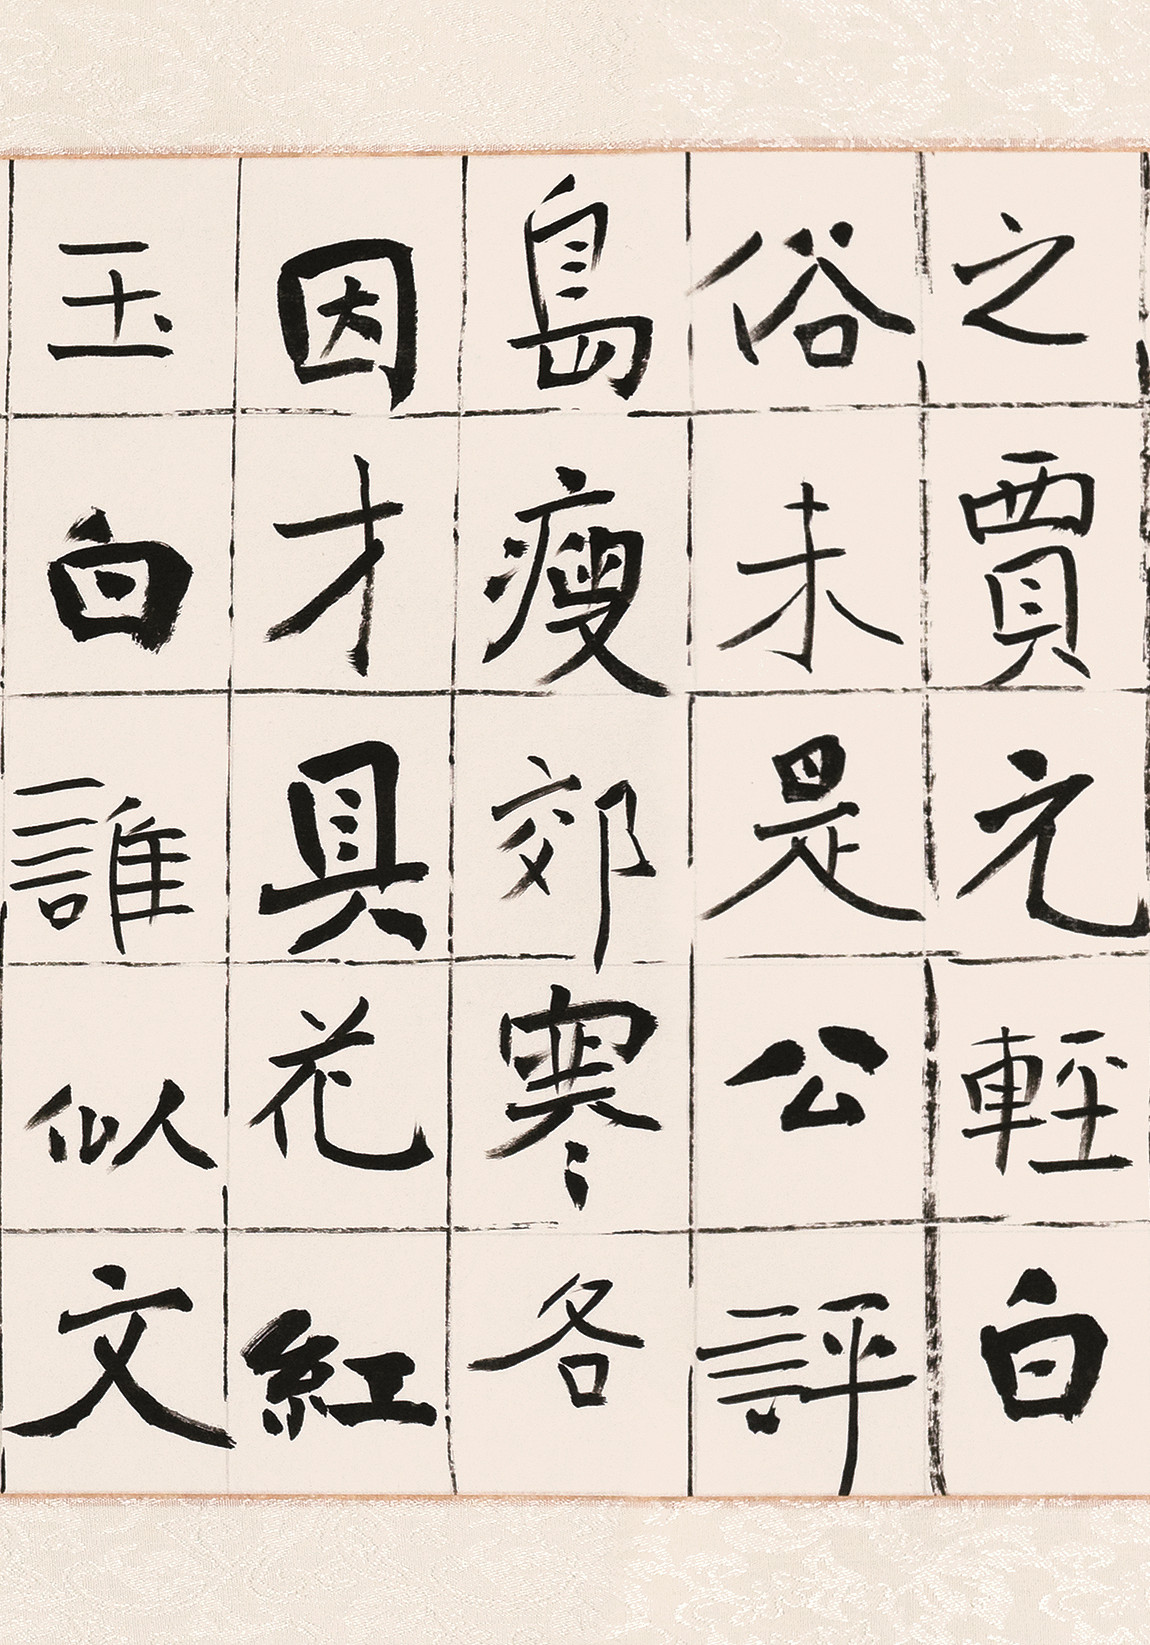 之賈元輕白
俗未是公評
島瘦郊寒各
因才具花紅
玉白誰似文